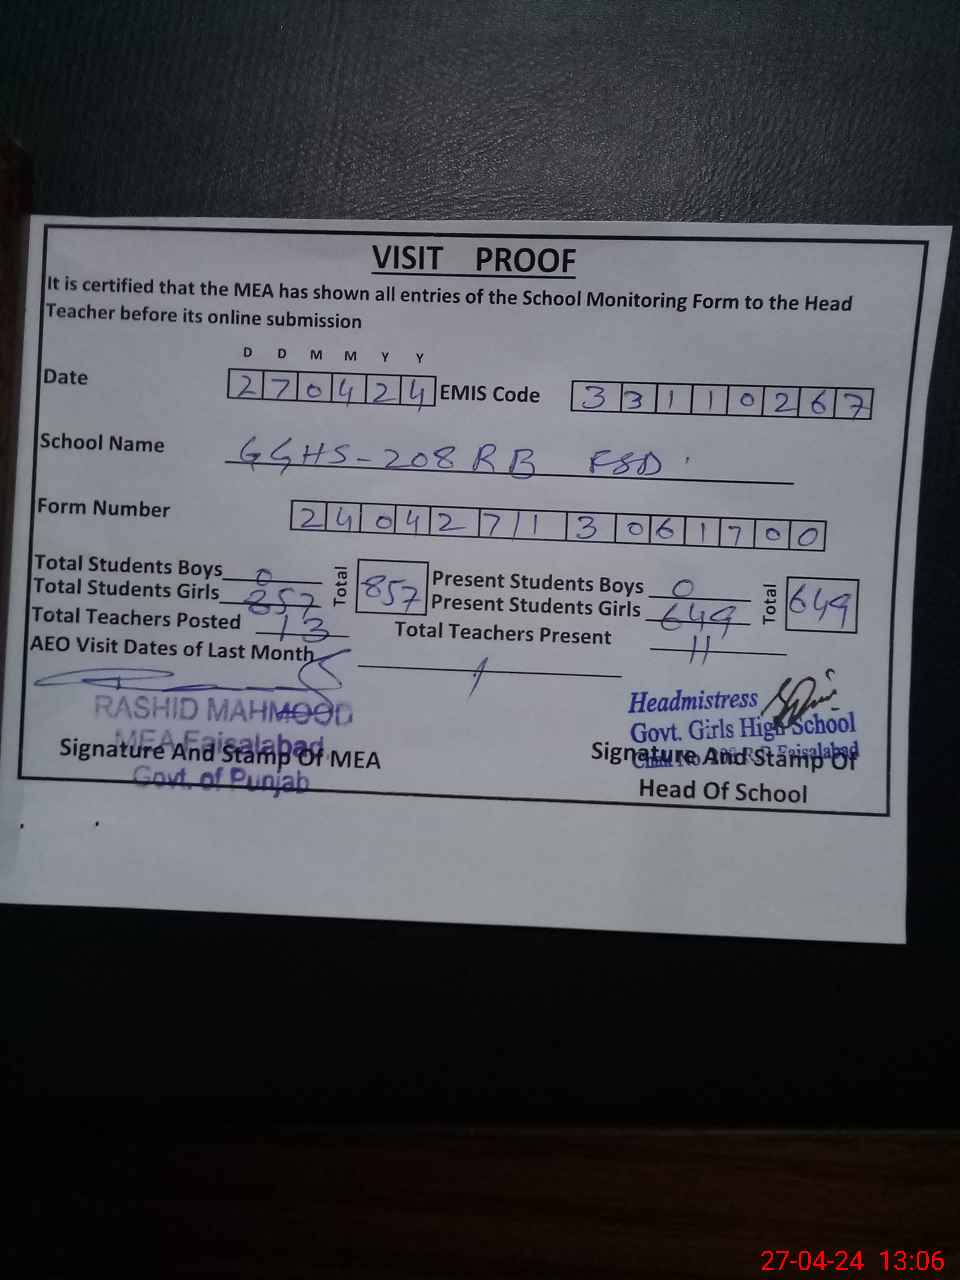 VISIT PROOF
It is certified that the MEA has shown all entries of the School Monitoring Form to the Head
Teacher before its online submission
D D M M Y Y
Date 270424 EMIS Code 33110267
School Name GGHS-208 RB FSD
Form Number 24042713061700
Total Students Boys 0 Total 857 Present Students Boys 0 Total 649
Total Students Girls 857 Present Students Girls 649
Total Teachers Posted 13 Total Teachers Present 11
AEO Visit Dates of Last Month
RASHID MAHMOOD
MEA Faisalabad
Govt. of Punjab
Signature And Stamp Of MEA
Headmistress
Govt. Girls High School
Faisalabad
Signature And Stamp Of
Head Of School
27-04-24 13:06